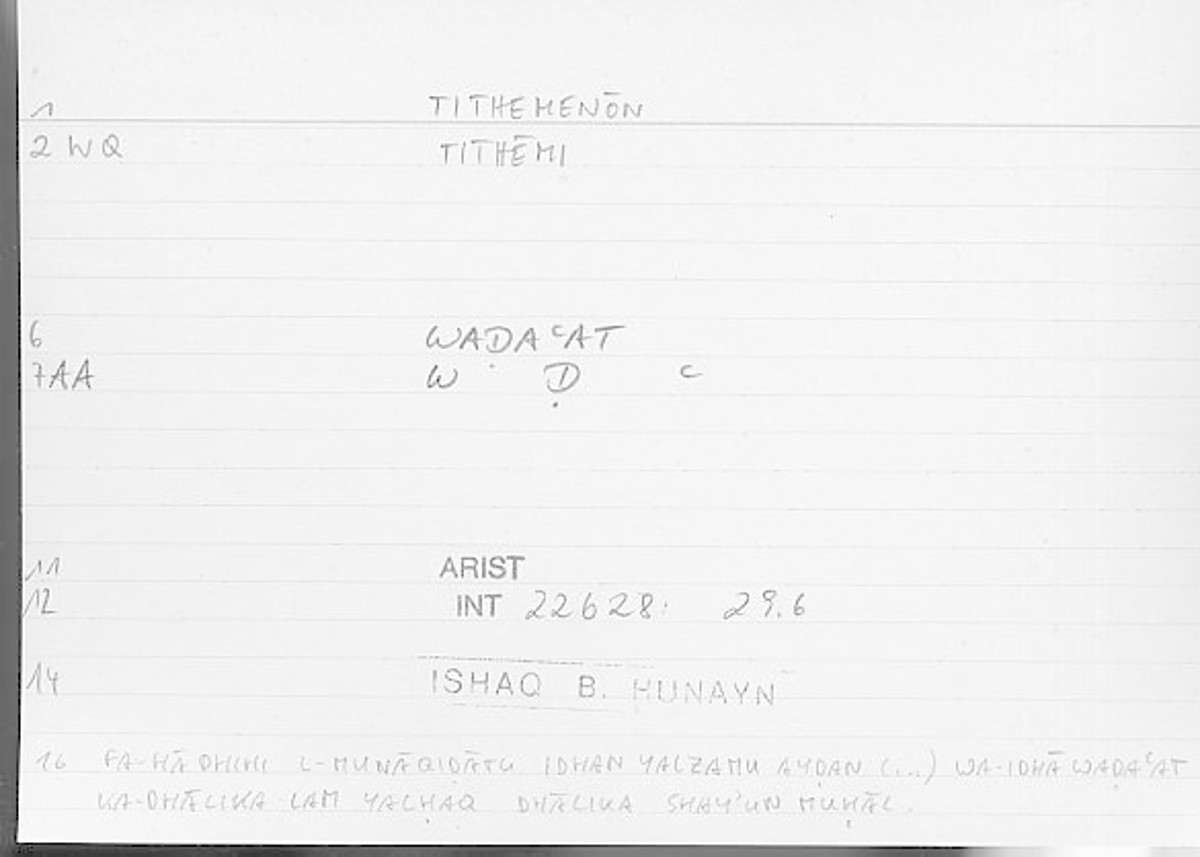 1 TITHEMENŌN
2 WQ TITHĒMI
6 WAḌAᶜAT
7AA W Ḍ ᶜ
11 ARIST
12 INT 22628: 29.6
14 ISHAQ B. HUNAYN
16 FA-HĀDHIHI L-MUNĀQIḌĀTU IDHAN YALZAMU AYḌAN (...) WA-IDHĀ WAḌAᶜAT
KA-DHĀLIKA LAM YALḤAQ DHĀLIKA SHAY'UN MUḤĀL.